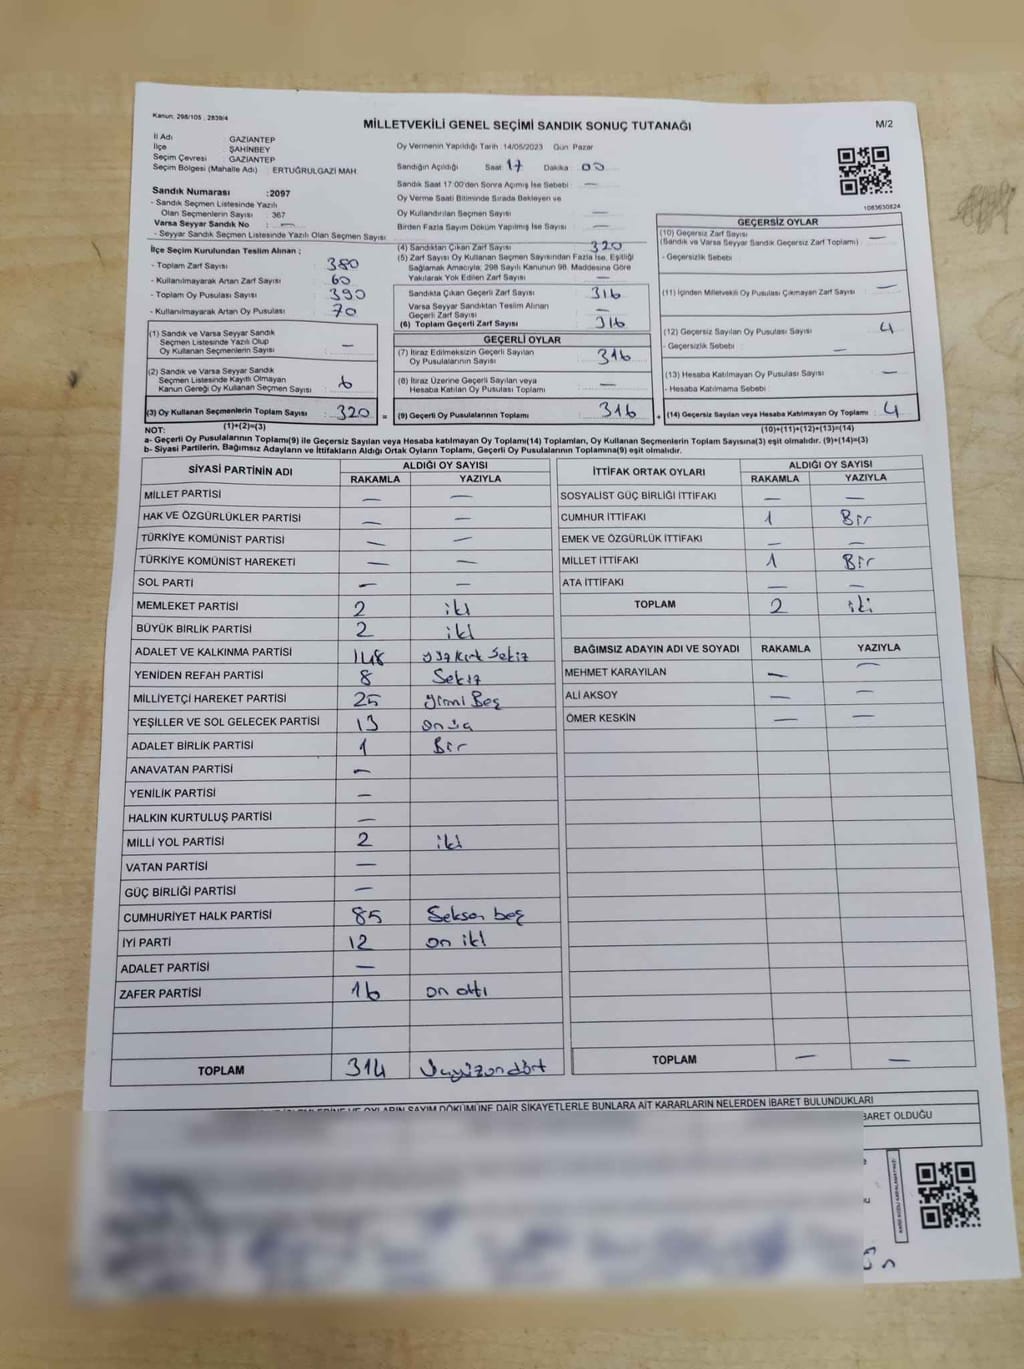 Kanun: 298/105 , 2839/4
MİLLETVEKİLİ GENEL SEÇİMİ SANDIK SONUÇ TUTANAĞI
M/2
İl Adı GAZİANTEP
İlçe ŞAHİNBEY
Seçim Çevresi GAZİANTEP
Seçim Bölgesi (Mahalle Adı) : ERTUĞRULGAZİ MAH.
Sandık Numarası :2097
- Sandık Seçmen Listesinde Yazılı
Olan Seçmenlerin Sayısı : 367
Varsa Seyyar Sandık No : —
- Seyyar Sandık Seçmen Listesinde Yazılı Olan Seçmen Sayısı
Oy Vermenin Yapıldığı Tarih :14/05/2023 Gün Pazar
Sandığın Açıldığı Saat 17 Dakika 00
Sandık Saat 17:00'den Sonra Açılmış İse Sebebi —
Oy Verme Saati Bitiminde Sırada Bekleyen ve
Oy Kullandırılan Seçmen Sayısı —
Birden Fazla Sayım Döküm Yapılmış İse Sayısı —
1083630824
İlçe Seçim Kurulundan Teslim Alınan ;
- Toplam Zarf Sayısı : 380
- Kullanılmayarak Artan Zarf Sayısı : 60
- Toplam Oy Pusulası Sayısı : 390
- Kullanılmayarak Artan Oy Pusulası : 70
(1) Sandık ve Varsa Seyyar Sandık
Seçmen Listesinde Yazılı Olup
Oy Kullanan Seçmenlerin Sayısı : —
(2) Sandık ve Varsa Seyyar Sandık
Seçmen Listesinde Kayıtlı Olmayan
Kanun Gereği Oy Kullanan Seçmen Sayısı : 6
(3) Oy Kullanan Seçmenlerin Toplam Sayısı : 320
(1)+(2)=(3)
(4) Sandıktan Çıkan Zarf Sayısı 320
(5) Zarf Sayısı Oy Kullanan Seçmen Sayısından Fazla İse, Eşitliği
Sağlamak Amacıyla, 298 Sayılı Kanunun 98. Maddesine Göre
Yakılarak Yok Edilen Zarf Sayısı : —
Sandıkta Çıkan Geçerli Zarf Sayısı : 316
Varsa Seyyar Sandıktan Teslim Alınan
Geçerli Zarf Sayısı : —
(6) Toplam Geçerli Zarf Sayısı : 316
GEÇERLİ OYLAR
(7) İtiraz Edilmeksizin Geçerli Sayılan
Oy Pusulalarının Sayısı : 316
(8) İtiraz Üzerine Geçerli Sayılan veya
Hesaba Katılan Oy Pusulası Toplamı : —
= (9) Geçerli Oy Pusulalarının Toplamı : 316
GEÇERSİZ OYLAR
(10) Geçersiz Zarf Sayısı
(Sandık ve Varsa Seyyar Sandık Geçersiz Zarf Toplamı) : —
- Geçersizlik Sebebi
(11) İçinden Milletvekili Oy Pusulası Çıkmayan Zarf Sayısı : —
(12) Geçersiz Sayılan Oy Pusulası Sayısı : 4
- Geçersizlik Sebebi : —
(13) Hesaba Katılmayan Oy Pusulası Sayısı : —
- Hesaba Katılmama Sebebi
+ (14) Geçersiz Sayılan veya Hesaba Katılmayan Oy Toplamı : 4
(10)+(11)+(12)+(13)=(14)
NOT:
a- Geçerli Oy Pusulalarının Toplamı(9) ile Geçersiz Sayılan veya Hesaba katılmayan Oy Toplamı(14) Toplamları, Oy Kullanan Seçmenlerin Toplam Sayısına(3) eşit olmalıdır. (9)+(14)=(3)
b- Siyasi Partilerin, Bağımsız Adayların ve İttifakların Aldığı Ortak Oyların Toplamı, Geçerli Oy Pusulalarının Toplamına(9) eşit olmalıdır.
SİYASİ PARTİNİN ADI ALDIĞI OY SAYISI
RAKAMLA YAZIYLA
MİLLET PARTİSİ — —
HAK VE ÖZGÜRLÜKLER PARTİSİ — —
TÜRKİYE KOMÜNİST PARTİSİ — —
TÜRKİYE KOMÜNİST HAREKETİ — —
SOL PARTİ — —
MEMLEKET PARTİSİ 2 iki
BÜYÜK BİRLİK PARTİSİ 2 iki
ADALET VE KALKINMA PARTİSİ 148 yüzkırk sekiz
YENİDEN REFAH PARTİSİ 8 Sekiz
MİLLİYETÇİ HAREKET PARTİSİ 25 yirmi Beş
YEŞİLLER VE SOL GELECEK PARTİSİ 13 on üç
ADALET BİRLİK PARTİSİ 1 Bir
ANAVATAN PARTİSİ —
YENİLİK PARTİSİ —
HALKIN KURTULUŞ PARTİSİ —
MİLLİ YOL PARTİSİ 2 iki
VATAN PARTİSİ —
GÜÇ BİRLİĞİ PARTİSİ —
CUMHURİYET HALK PARTİSİ 85 Seksen beş
İYİ PARTİ 12 on iki
ADALET PARTİSİ —
ZAFER PARTİSİ 16 on altı
TOPLAM 314 Üçyüzondört
İTTİFAK ORTAK OYLARI ALDIĞI OY SAYISI
RAKAMLA YAZIYLA
SOSYALİST GÜÇ BİRLİĞİ İTTİFAKI — —
CUMHUR İTTİFAKI 1 Bir
EMEK VE ÖZGÜRLÜK İTTİFAKI — —
MİLLET İTTİFAKI 1 Bir
ATA İTTİFAKI — —
TOPLAM 2 iki
BAĞIMSIZ ADAYIN ADI VE SOYADI RAKAMLA YAZIYLA
MEHMET KARAYILAN — —
ALİ AKSOY — —
ÖMER KESKİN — —
TOPLAM — —
VE OYLARIN SAYIM DÖKÜMÜNE DAİR ŞİKAYETLERLE BUNLARA AİT KARARLARIN NELERDEN İBARET BULUNDUKLARI
BARET OLDUĞU